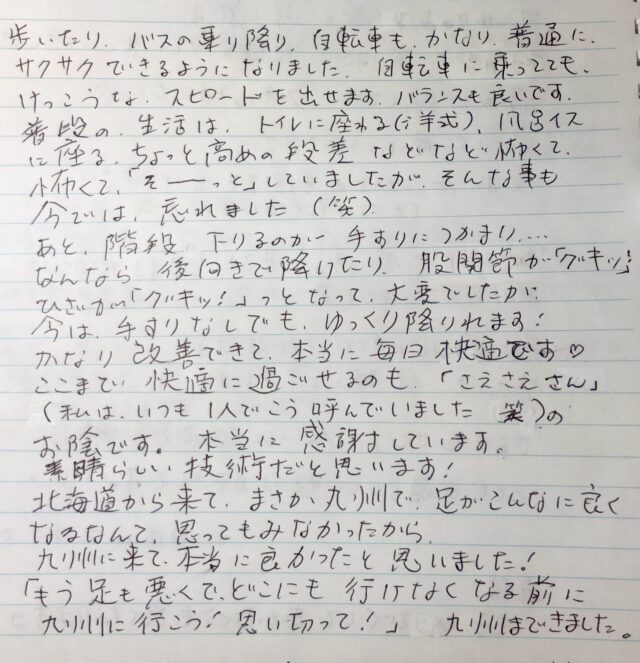 歩いたり、バスの乗り降り、自転車も、かなり、普通に、
サクサクできるようになりました。自転車に乗ってても、
けっこうな、スピードを出せます。バランスも良いです。
普段の、生活は、トイレに座れる(洋式)、風呂イス
に座る、ちょっと高めの段差などなど怖くて、
怖くて、「そーーっと」していましたが、そんな事も
今では、忘れました(笑)
あと、階段 下りるのが 手すりにつかまり、…
なんなら 後向きで降けたり、股関節が「グキッ」!
ひざが「グキッ!」っとなって、大変でしたが、
今は、手すりなしでも、ゆっくり降りれます!
かなり 改善できて、本当に毎日 快適です♡
ここまで 快適に過ごせるのも、「さえさえさん」
(私は、いつも1人でこう呼んでいました 笑)の
お陰です。本当に 感謝しています。
素晴らしい 技術だと思います!
北海道から来て、まさか、九州で、足がこんなに良く
なるなんて、思ってもみなかったから、
九州に来て、本当に良かったと思いました!
「もう足も悪くて、どこにも 行けなくなる前に
九州に行こう! 思い切って!」 九州まできました。